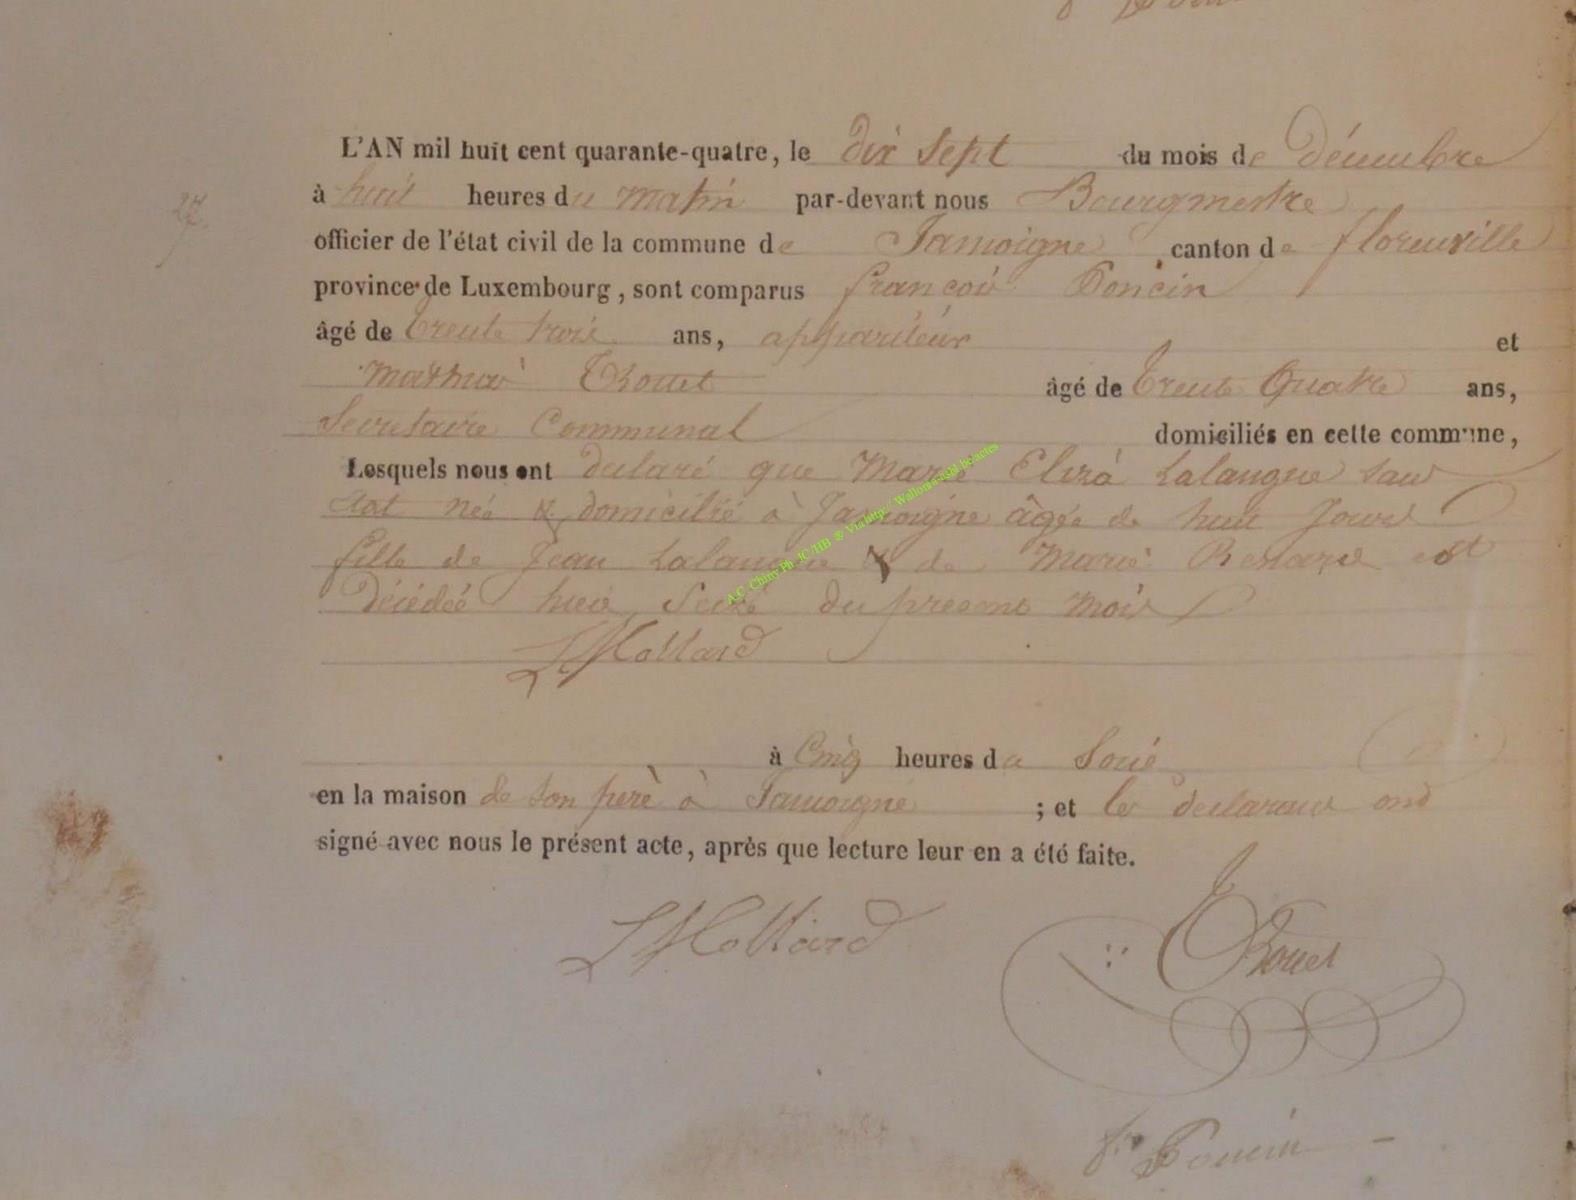 27
L'AN mil huit cent quarante-quatre, le dix sept du mois de décembre
à huit heures du matin par-devant nous Bourgmestre
officier de l'état civil de la commune de Jamoigne canton de florenville
province de Luxembourg, sont comparus françois Poncin
âgé de trente trois ans, appariteur et
Mathieu Thouet âgé de trente Quatre ans,
Secretaire Communal domiciliés en cette commune,
Lesquels nous ont declaré que Marie Eliza Lalangue sans
Etat née & domicilié à Jamoigne âgée de huit Jours
fille de Jean Lalangue & de Marie Renard est
décédée hier Seize du present mois
LHollard
à Cinq heures du Soir
en la maison de son père à Jamoigne ; et les declarans ont
signé avec nous le présent acte, après que lecture leur en a été faite.
LHollard
Thouet
fr. Poncin
A.C. Chiny Ph. JC/HB @ Via http:// Wallonia-asbl.be/actes